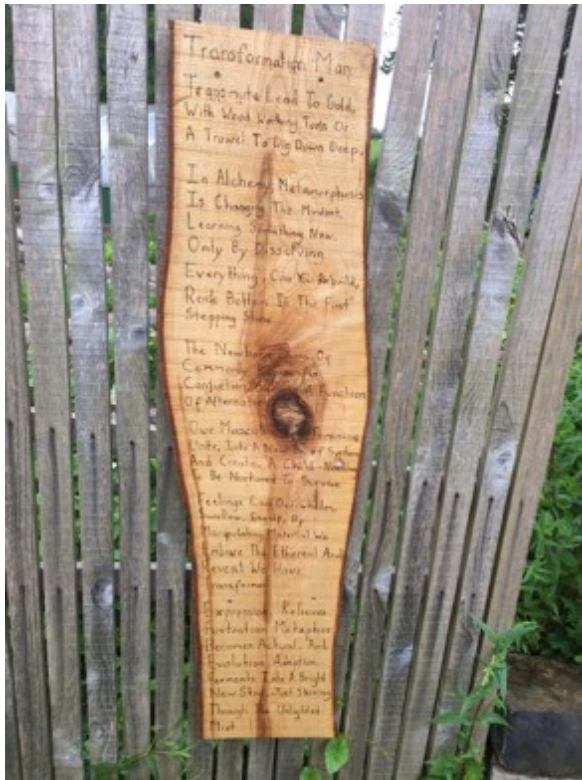 Transformation Man
Transmute Lead To Gold,
With Wood Working Tools Or
A Trowel To Dig Down Deep.
In Alchemy Metamorphosis
Is Changing The Mindset
Learning Something New.
Only By Dissolving
Everything, Can You Rebuild,
Rock Bottom Is The First
Stepping Stone
The Or
Common
A Function
Of
Our Feminine
Unite, Into A System
And Create, A Child
Be Nurtured To Survive
Feelings Can Overwhelm
Swallow, By
Manipulating Material We
Embrace The Ethereal And
Reveal We Have
Transformed
Expression, Relieves
Frustration Metaphor
Becomes Actual, And
Evolution, Adaption,
Ferments Into A Bright
New Star, Just Shining
Through The Unlighted
Mist